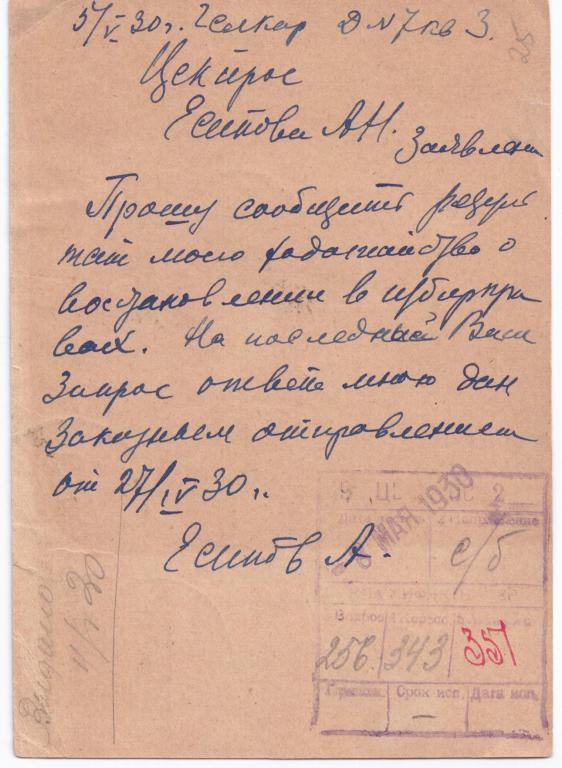 5/V 30 г. Челкар Д N 7 кв 3.
25
Цектрос
Есипова А.Н.
Заявлени
Прошу сообщить резуль
тат моего ходатайство о
востановлении в избирпра
вах. На последный Ваш
Запрос ответ мною дан
Заказным отправлением
от 27/IV 30 г.
Есипов А.
8 МАЯ 1930
с/б
256. 343 357
Срок исп. Дата исп.
—
11/V 30